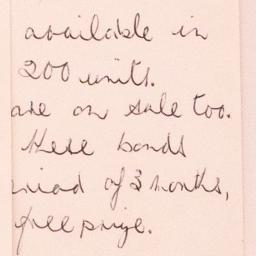 available in
200 units.
are on sale too.
these bonds
riod of 3 months,
free prize.